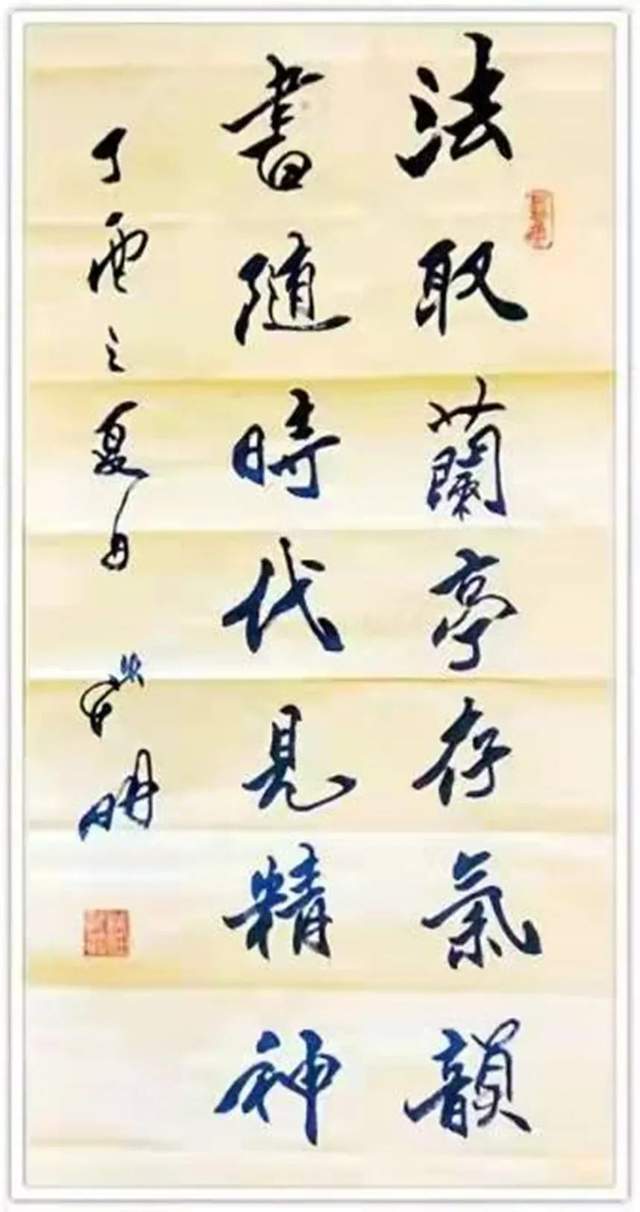 法取蘭亭存氣韻
書隨時代見精神
丁酉之夏月 明